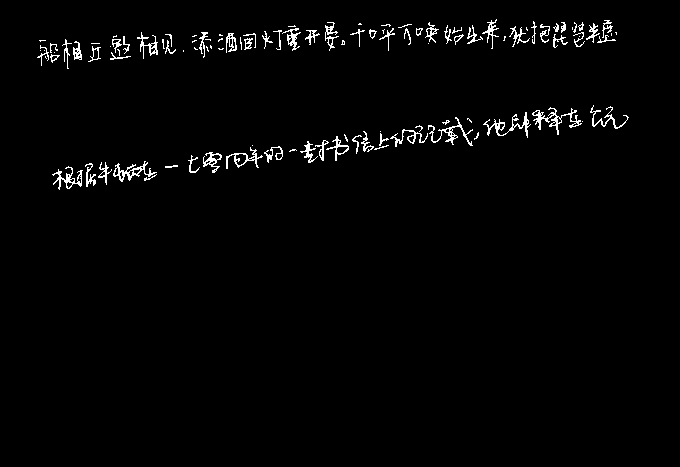 船相近邀相见.添酒回灯重开宴。千呼万唤始出来,犹抱琵琶半遮
根据牛顿在一七零四年的一封书信上的记载,他解释在公元